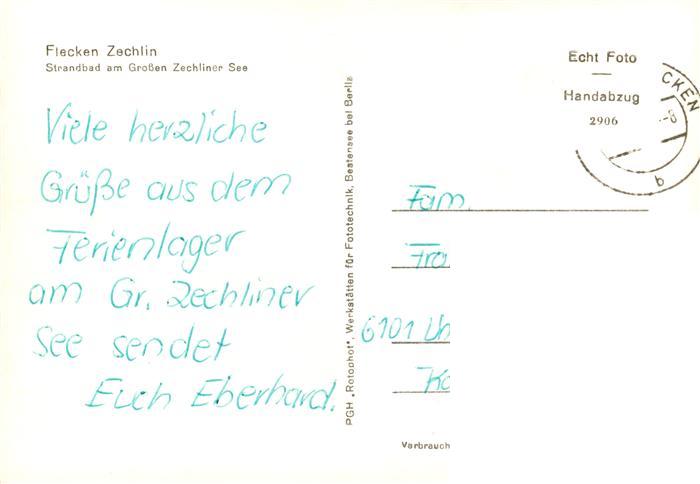 Flecken Zechlin
Strandbad am Großen Zechliner See
Viele herzliche
Grüße aus dem
Ferienlager
am Gr. Zechliner
See sendet
Euch Eberhard.
PGH „Rotophot", Werkstätten für Fototechnik, Bestensee bei Berlin
Echt Foto
Handabzug
2906
CKEN
-8
b
Fam.
Fra
6101 Un
Ka
Varbrauch